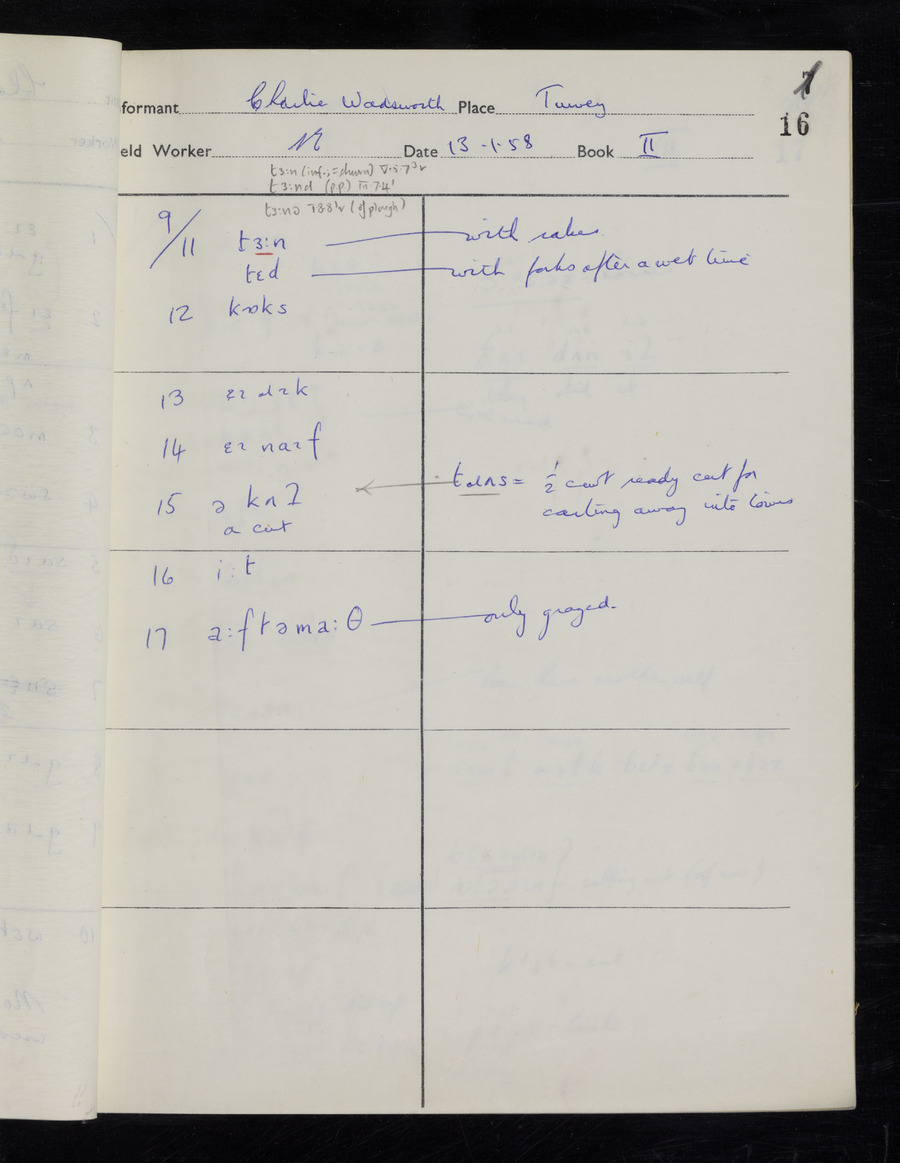 7
16
formant Charlie Wadsworth Place Turvey
eld Worker Date 13.1.58 Book II
tɜ:n (inf.; = churn) V.5.7³v
tɜ:nd (pp) III 7.4¹
tɜ:nə (of plough)
9/11 tɜ:n with rakes.
tɛd with forks after a wet time
12 kɒks
13
14
tɑns = ½ cut ready cut for
15 ə knɪ carting away into towns
a cut
16 i:t
17 a:ftəma:θ only grazed.